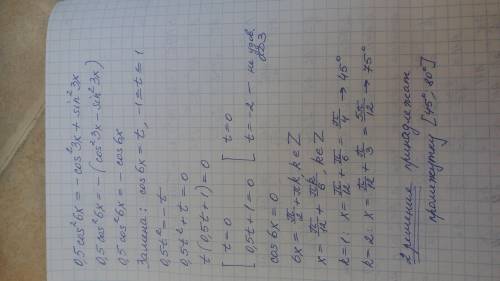 0,5cos²6x = -cos²3x + sin²3x
0,5cos²6x = -(cos²3x - sin²3x)
0,5cos²6x = -cos6x
Замена: cos6x = t, -1≤t≤1
0,5t² = -t
0,5t² + t = 0
t(0,5t + 1) = 0
[ t=0 [ t=0
0,5t + 1 = 0 t = -2 — не удов. ОДЗ
cos6x = 0
6x = π/2 + πk, k∈Z
x = π/12 + πk/6, k∈Z
k=1: x = π/12 + π/6 = π/4 → 45°
k=2: x = π/12 + π/3 = 5π/12 → 75°
2 решения принадлежат
промежутку [45°, 80°]